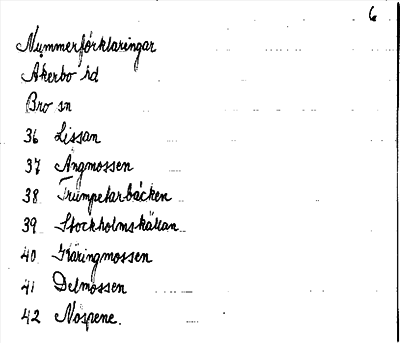 6
Nummerförklaringar
Åkerbo hd
Bro sn
36 Lissan
37 Ängmossen
38 Trumpetarbäcken
39 Stockholmskällan
40 Käringmossen
41 Delmossen
42 Nospene.